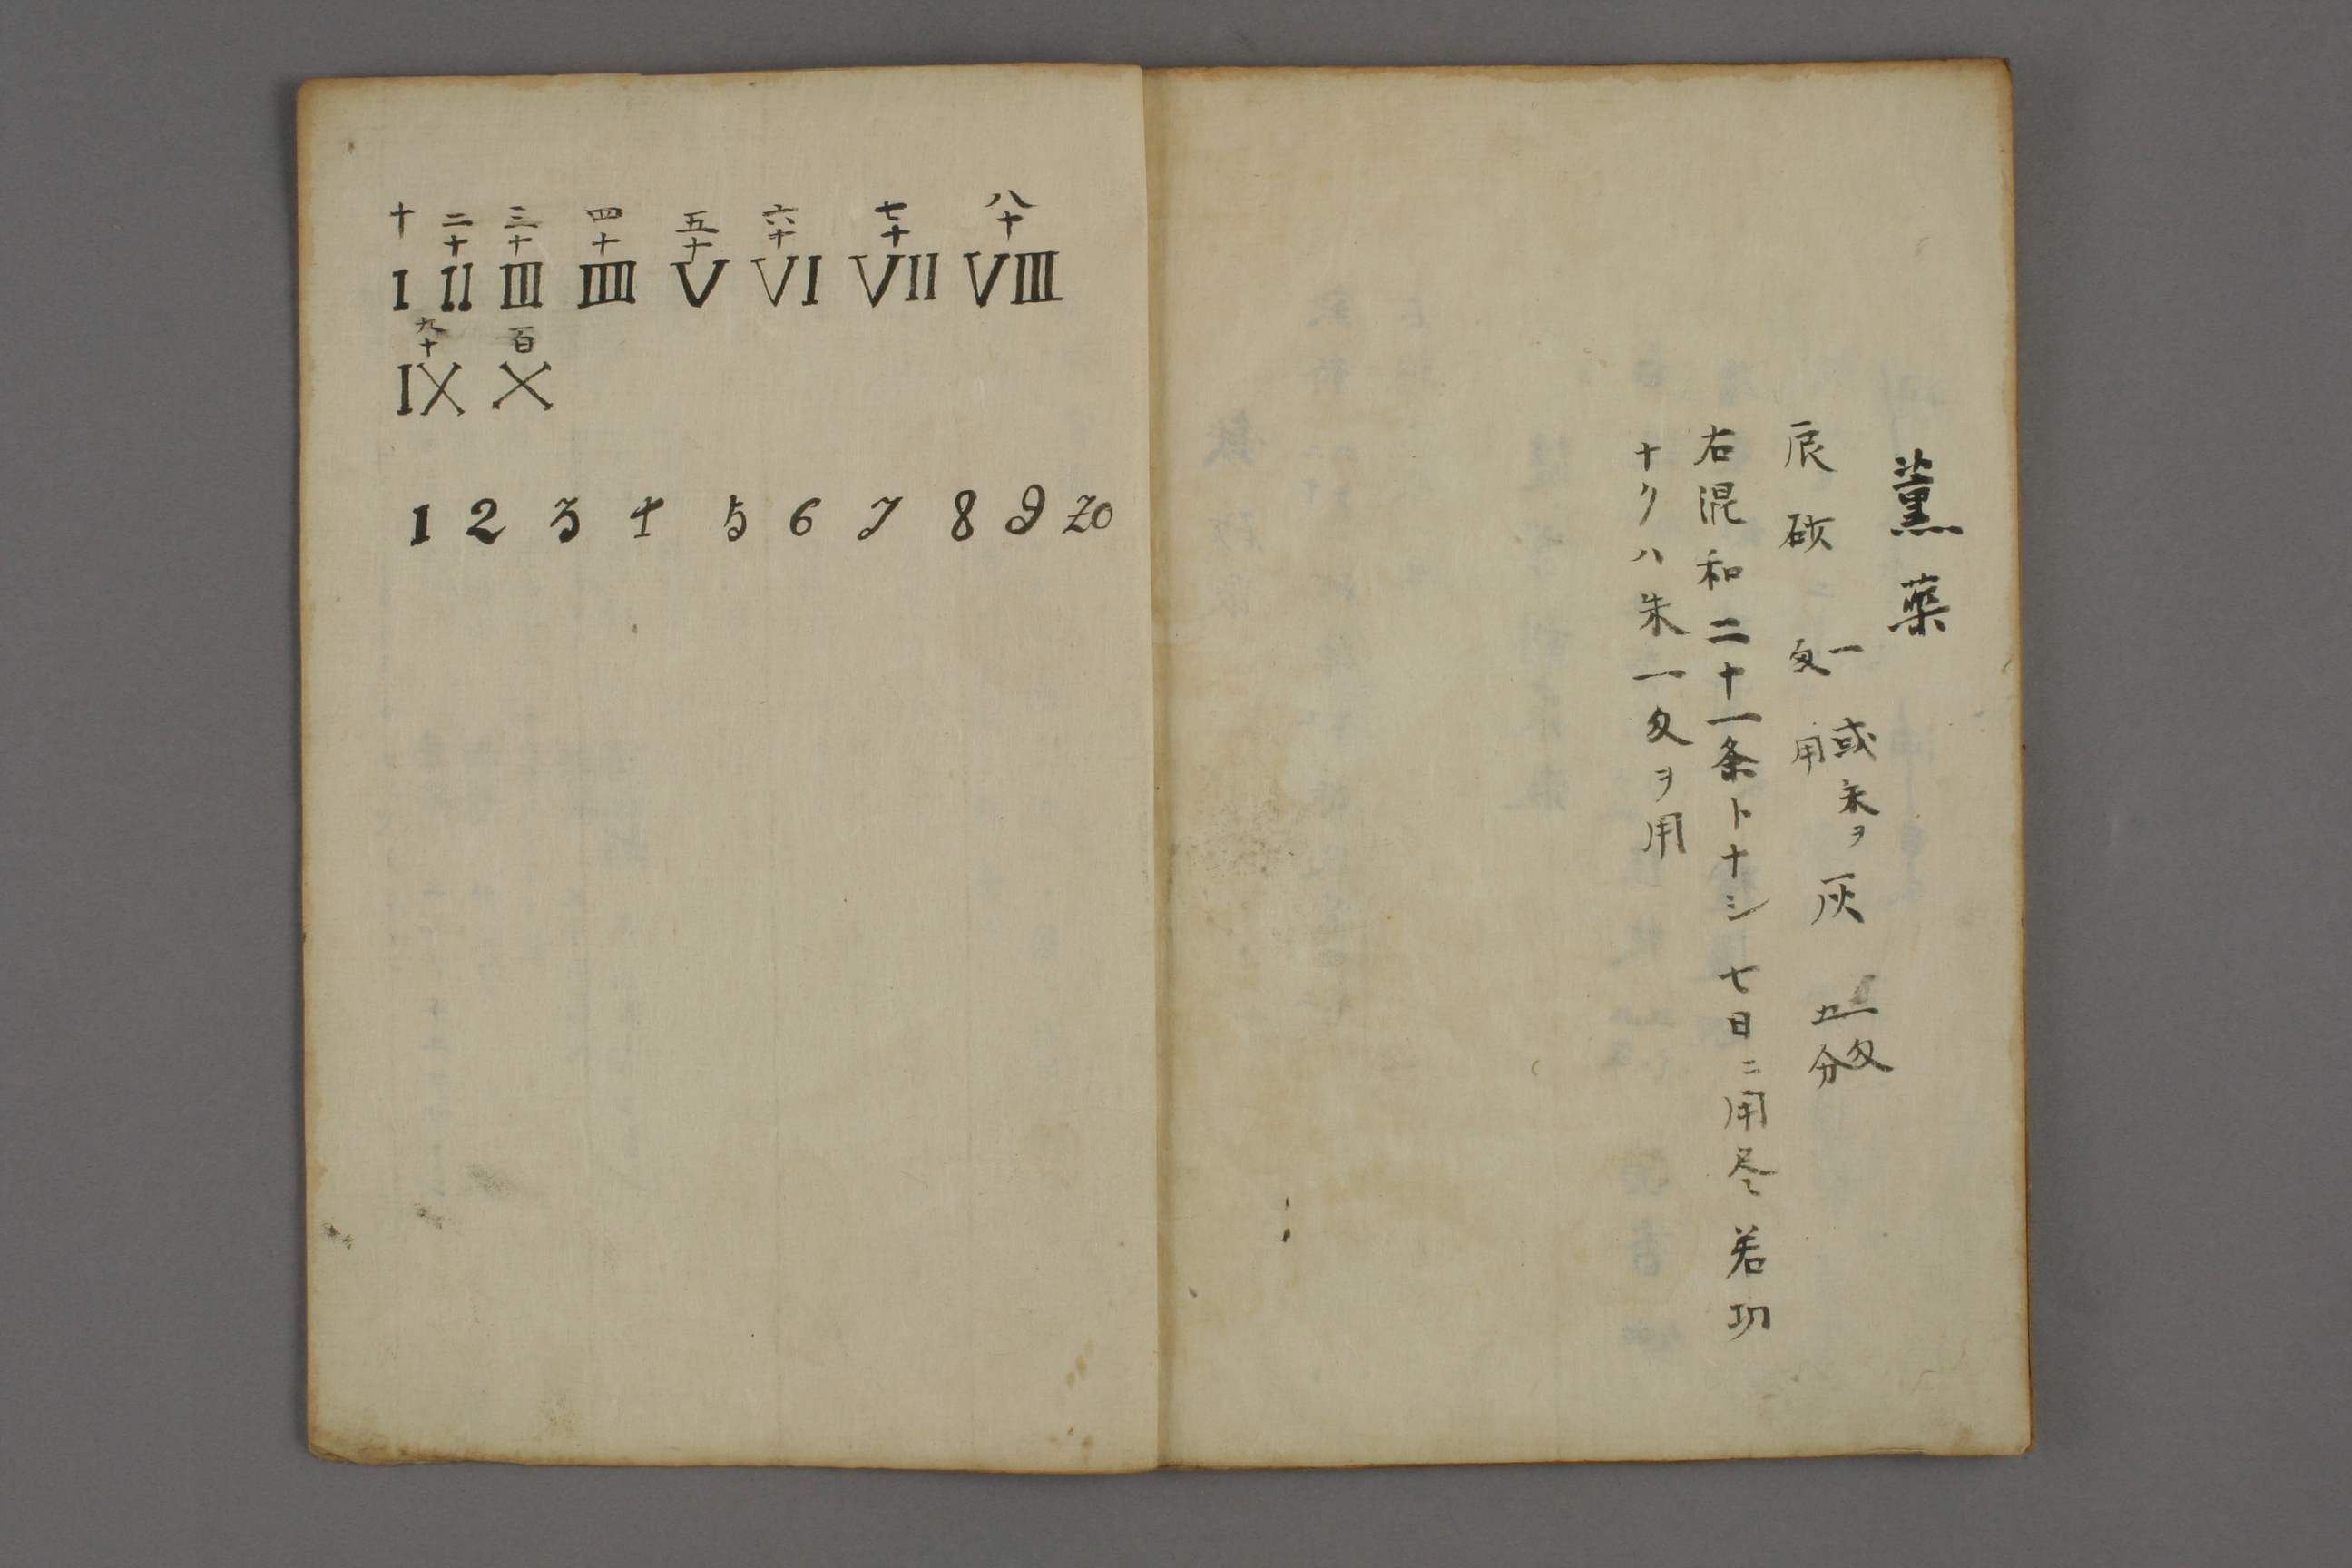 薫薬
辰砂 一匁 或朱ヲ用 灰 一匁五分
右混和二十一条トナシ七日ニ用尽若功
ナクハ朱一匁ヲ用
十 二十 三十 四十 五十 六十 七十 八十
I II III IIII V VI VII VIII
九十 百
IX X
1 2 3 4 5 6 7 8 9 20